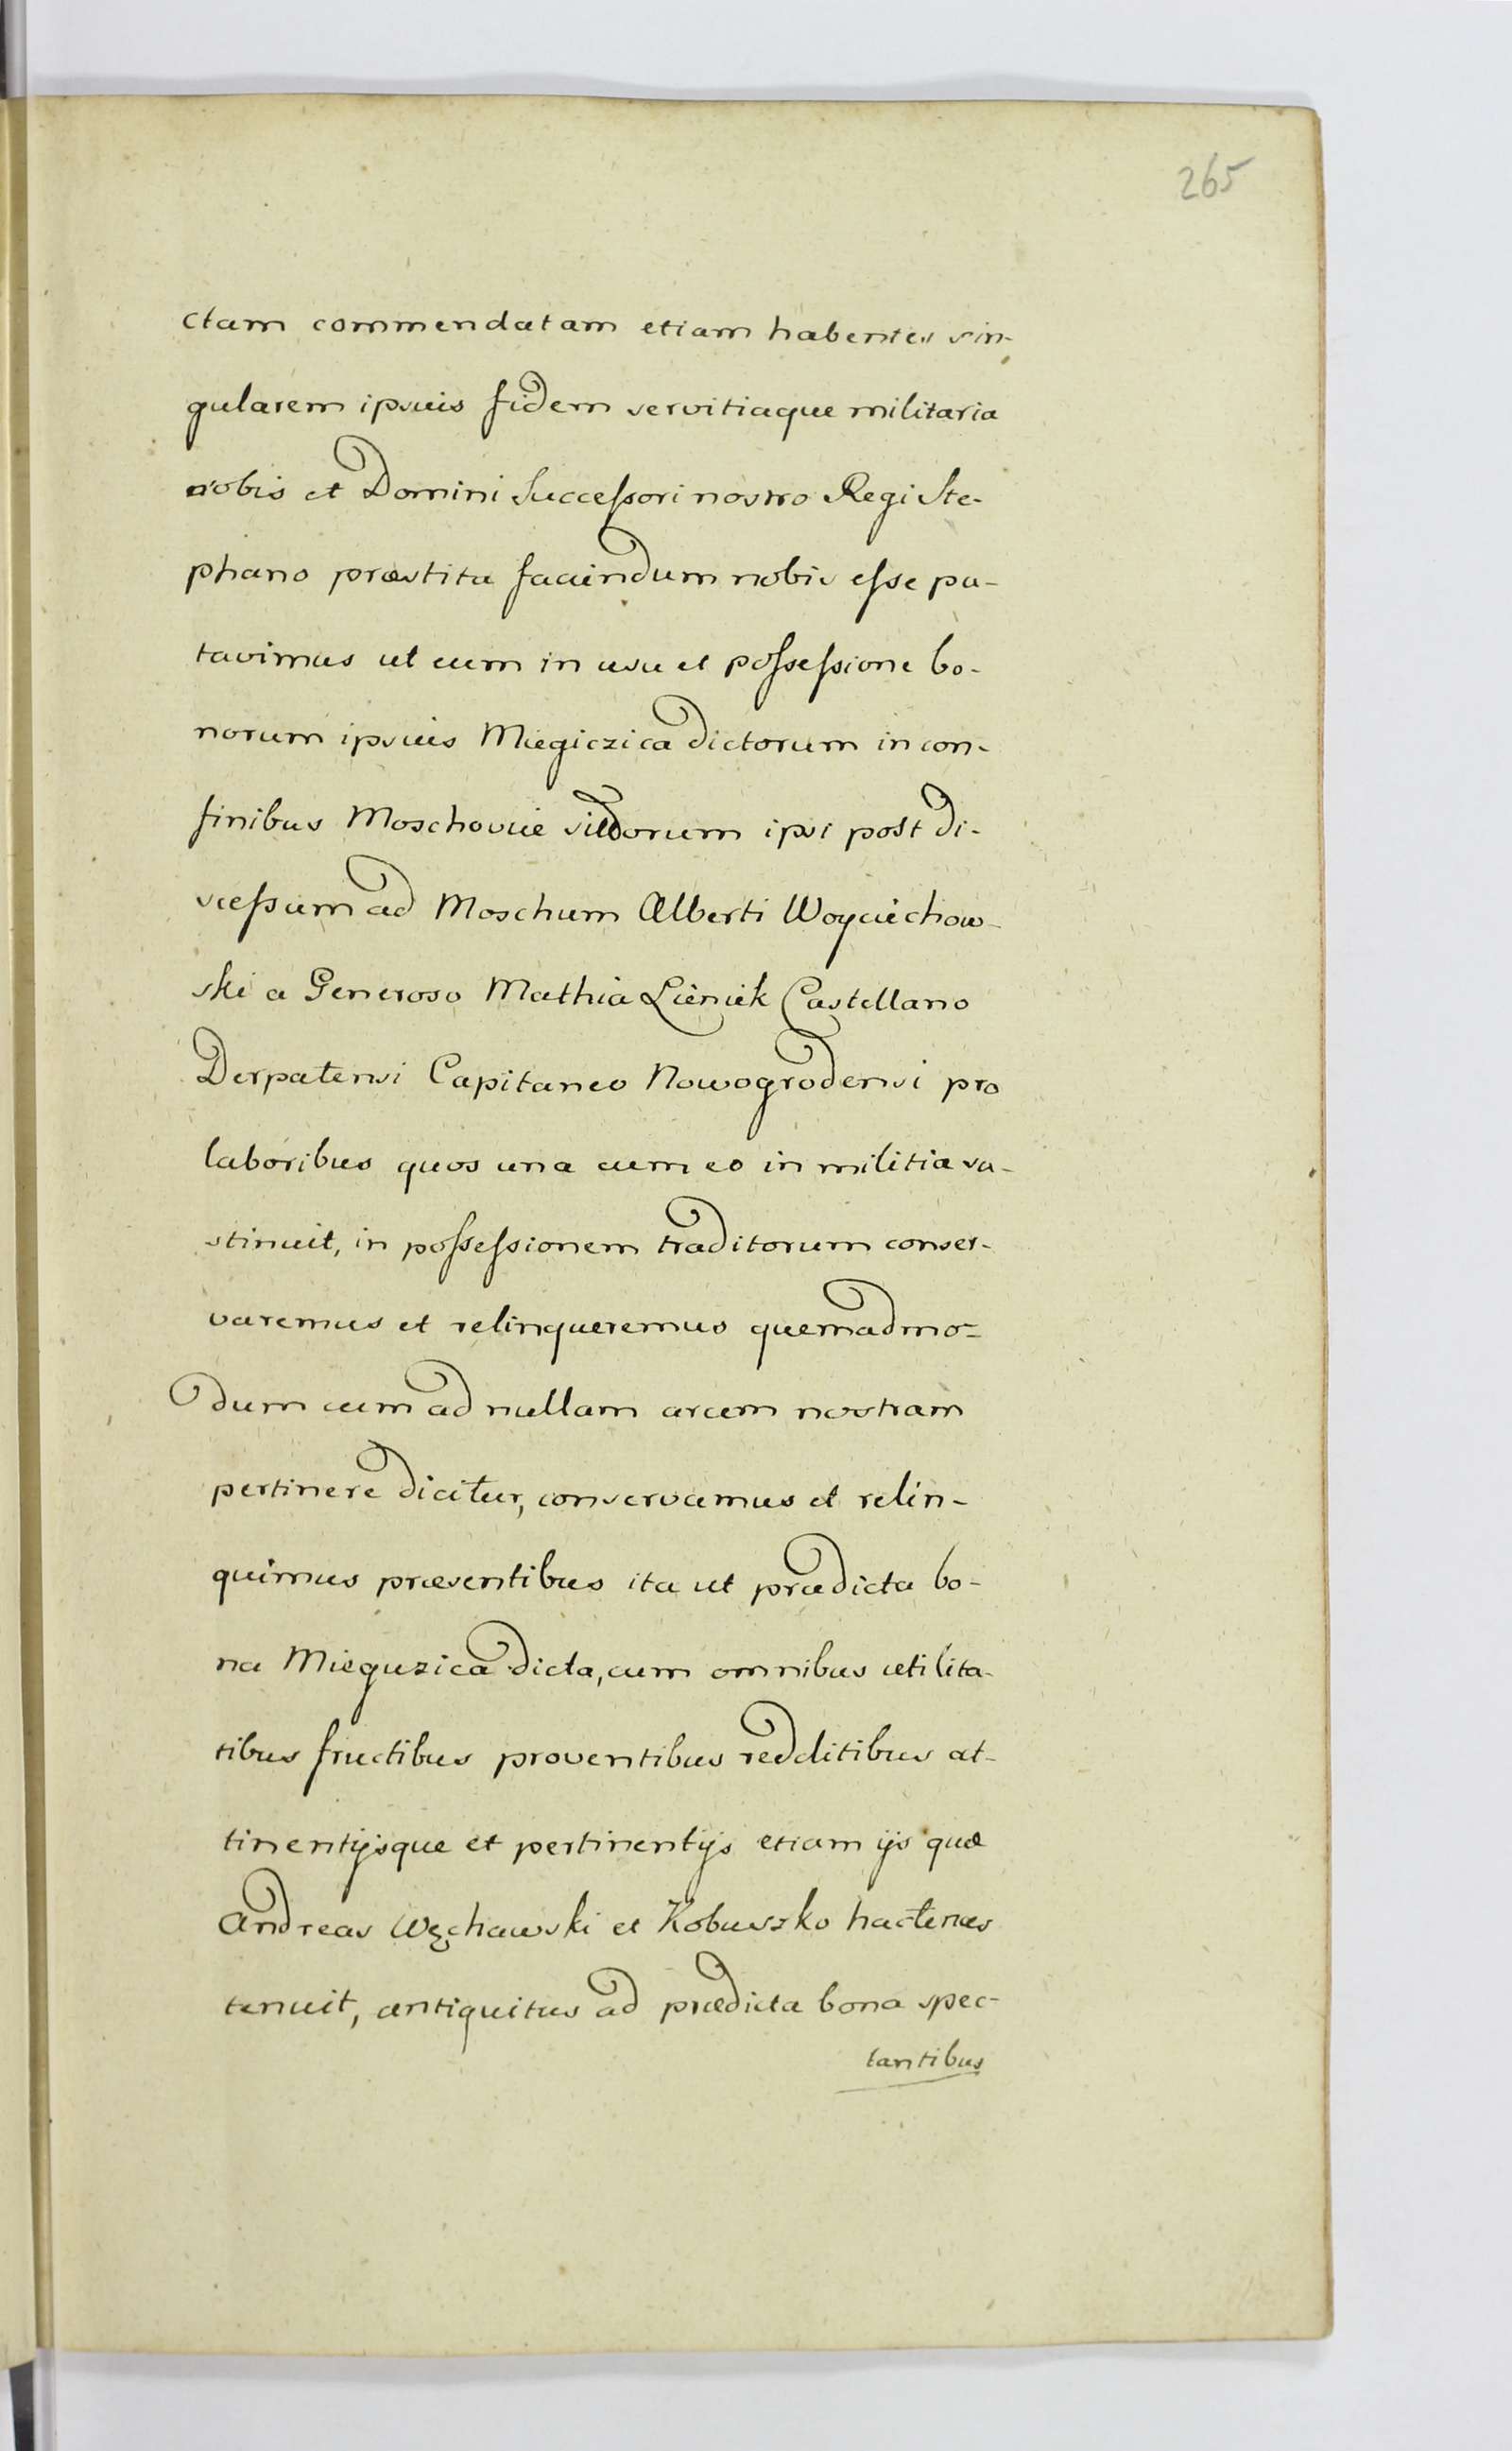 265
ctam commendatam etiam habentes sin-
gularem ipsius fidem servitiaque militaria
nobis et Domini Successori nostro Regi Ste-
phano præstita faciendum nobis esse pu-
tavimus ut eum in usu et possessione bo-
norum ipsius Miegiczica dictorum in con-
finibus Moschoviæ sitorum ipsi post di-
scessum ad Moschum Alberti Woyciechow-
ski a Generoso Mathia Lieniek Castellano
Derpatensi Capitaneo Nowogrodensi pro
laboribus quos una cum eo in militia su-
stinuit, in possessionem traditorum conser-
varemus et relinqueremus quemadmo=
dum cum ad nullam arcem nostram
pertinere dicitur, conservamus et relin-
quimus præsentibus ita ut prædicta bo-
na Mieguzica dicta, cum omnibus utilita-
tibus fructibus proventibus redditibus at-
tinentijsque et pertinentijs etiam ijs quæ
Andreas Węchawski et Kobuszko hactenus
tenuit, antiquitus ad prædicta bona spec-
tantibus